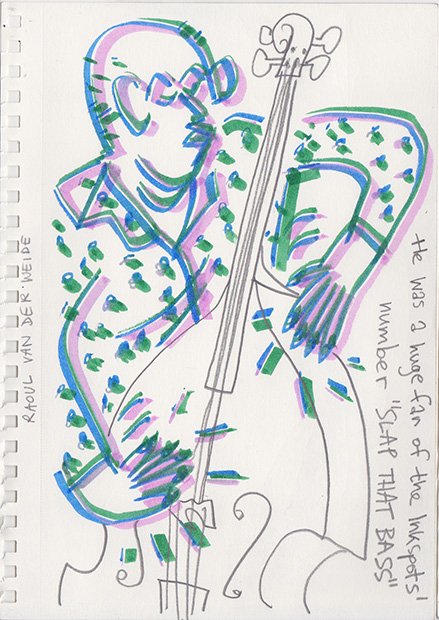 RAOUL VAN DER WEIDE
He was a huge fan of the Inkspots'
number "SLAP THAT BASS"